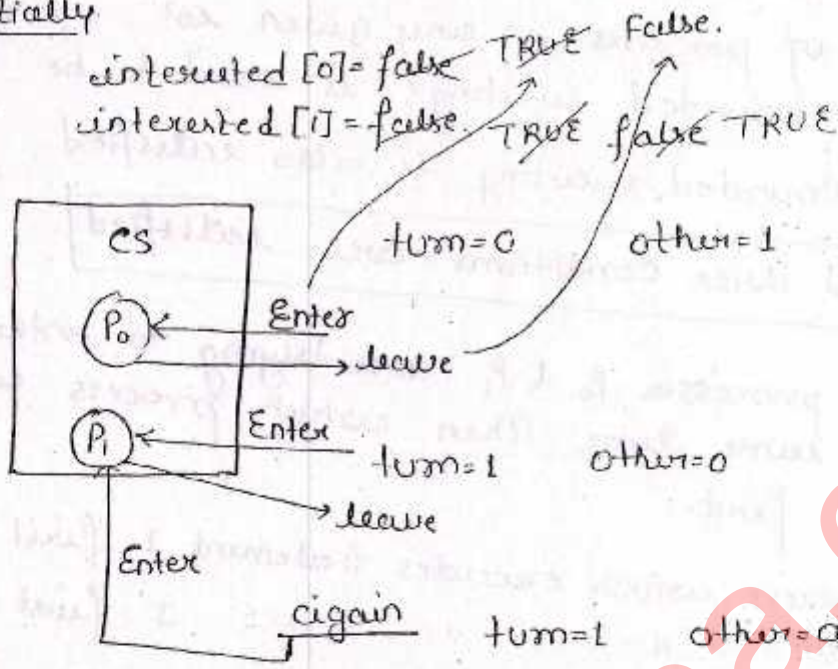 tially
interested [0] = false TRUE False.
interested [1] = false TRUE false TRUE
CS
turn=0 other=1
P0
Enter
leave
P1
Enter
turn=1 other=0
leave
Enter
again turn=1 other=0